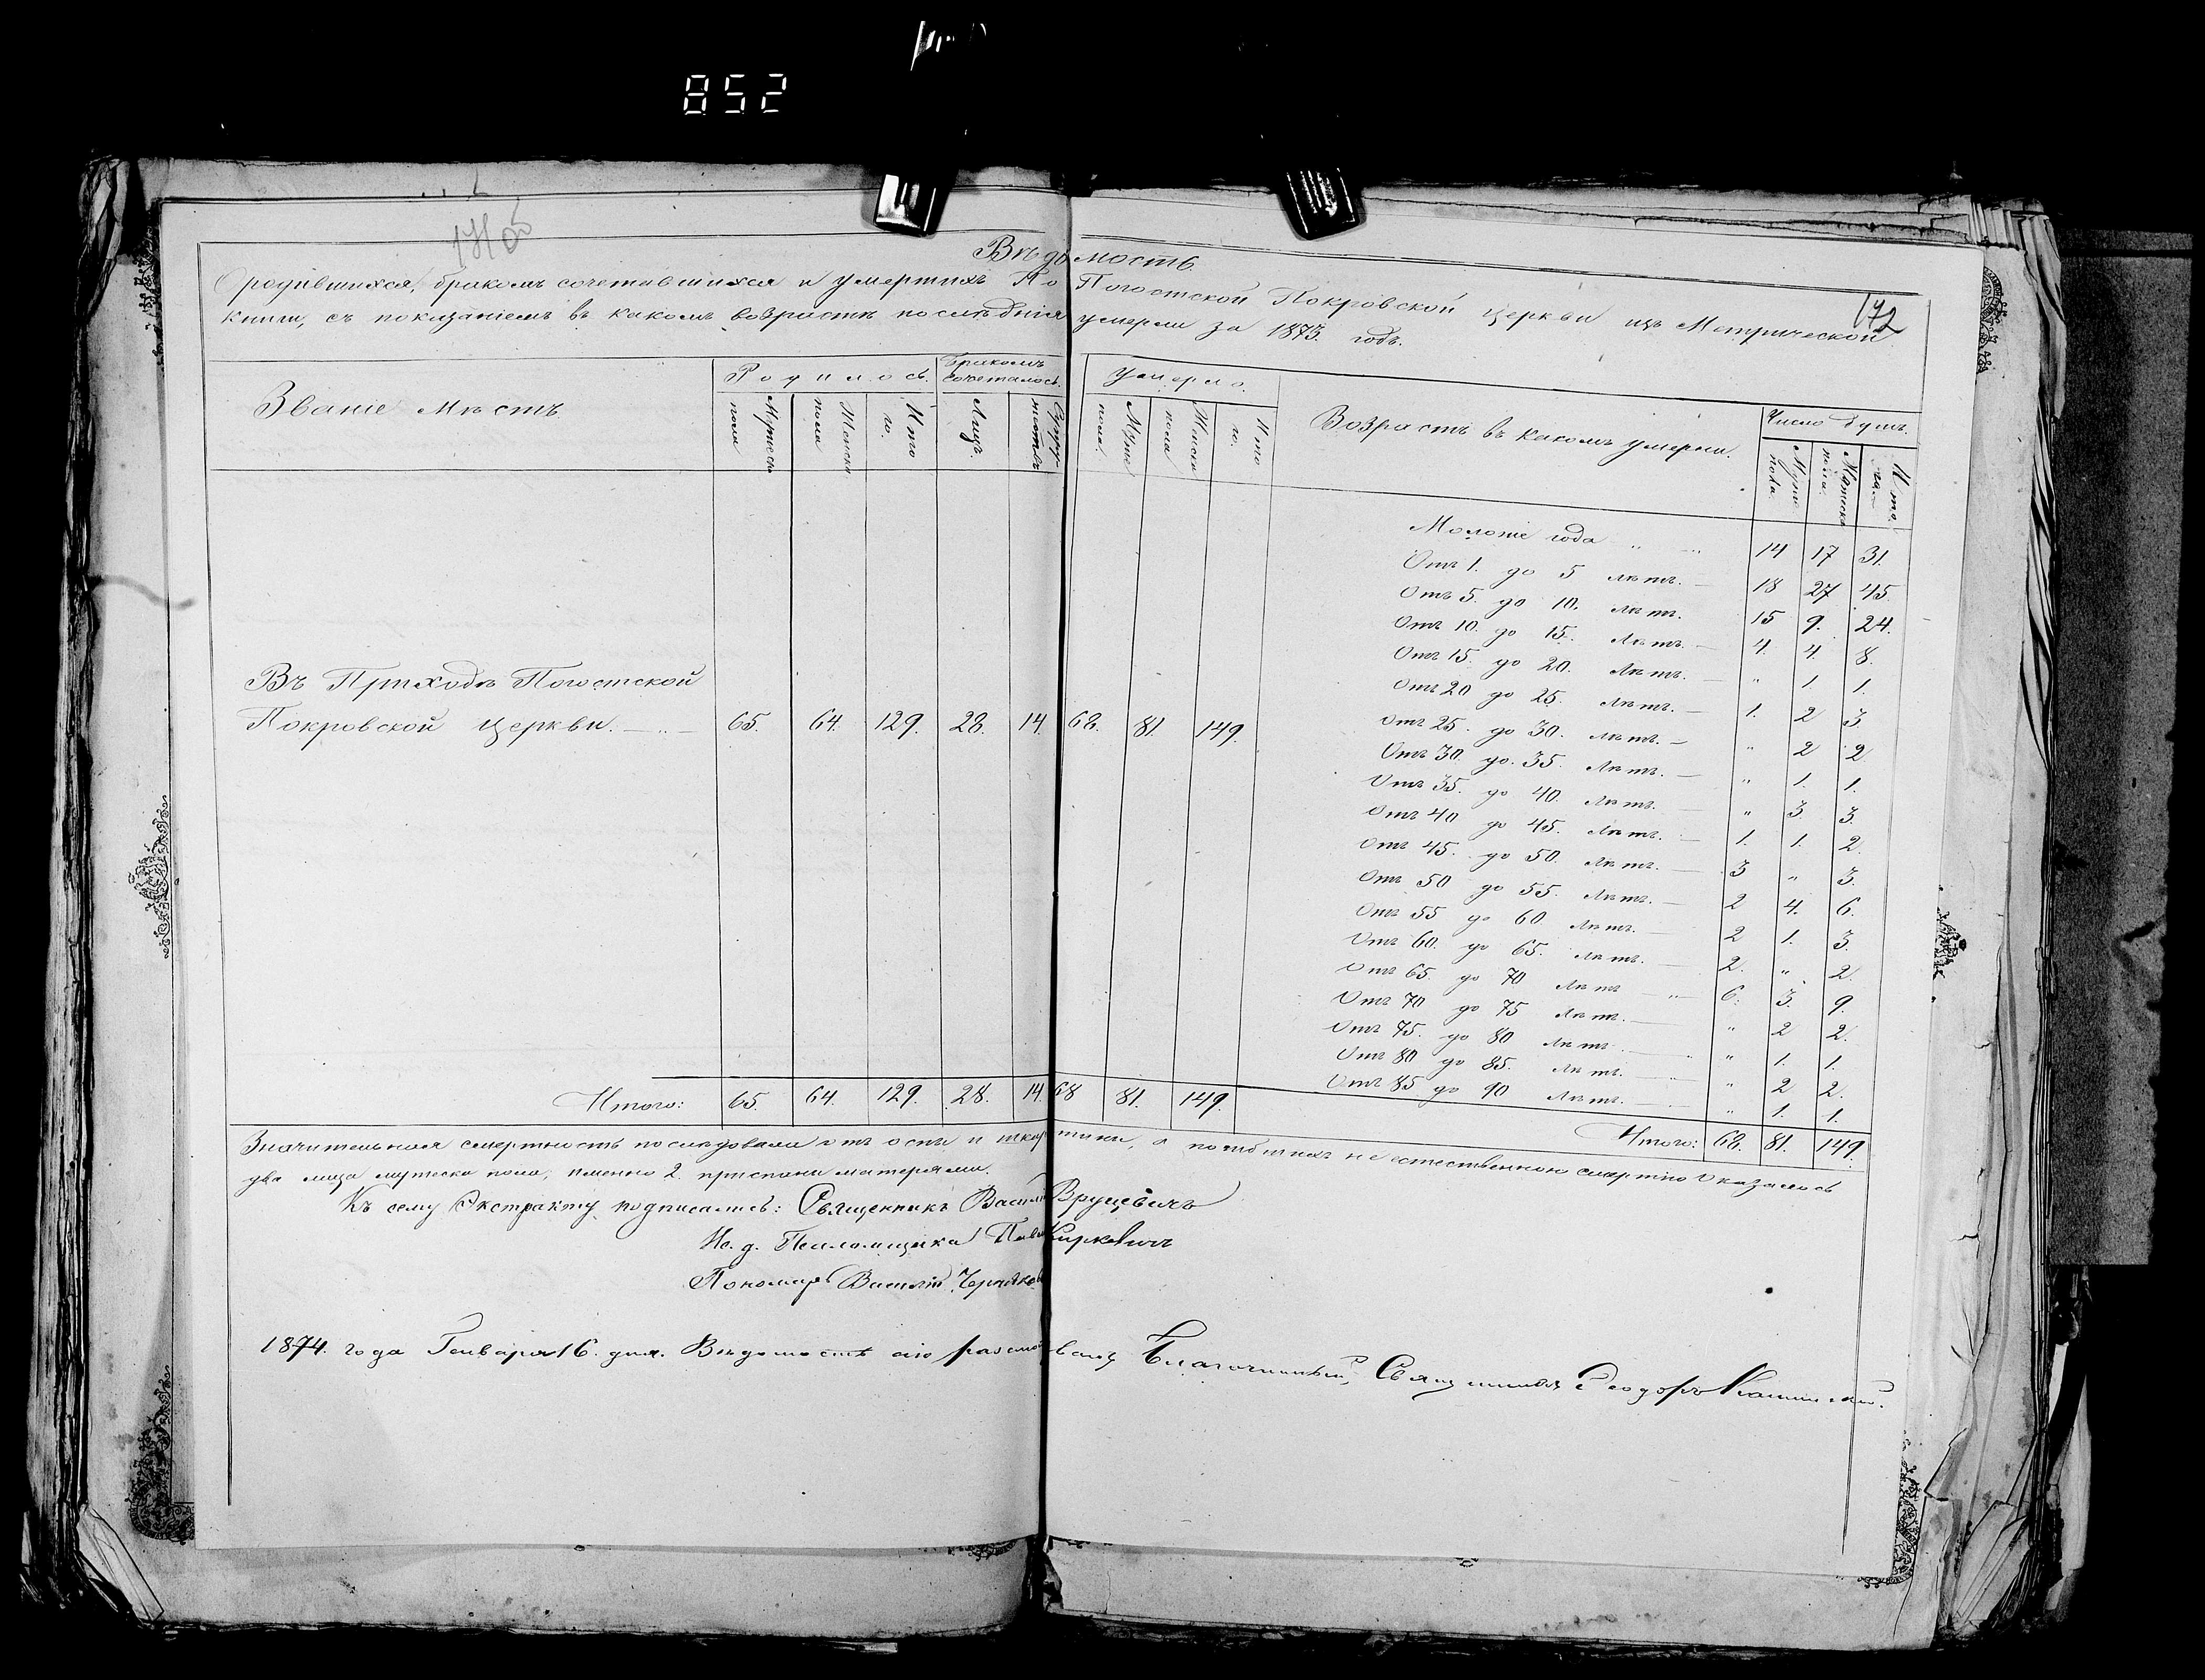 852
171 об
172
Вѣдомость
О родившихся, бракомъ сочетавшихся и умершихъ По Погостской Покровской церкви изъ Метрической
книги, съ показаніемъ въ какомъ возрастѣ послѣднія умерли за 1873. годъ.
Званіе Мѣстъ
Родилось.
Бракомъ сочеталось.
Умерло.
Возрастъ въ какомъ умерли.
Число душъ.
Мужеск пола
Женска пола
Ито го.
Лицъ.
Супружествъ
Муже пола.
Женска пола
Ито го.
Муже пола
Женска пола.
Ито го.
Моложе года „ „ 14 17 31.
Отъ 1. до 5 лѣтъ. — 18 27 45
Отъ 5. до 10. лѣтъ. 15 9. 24.
Отъ 10. до 15. лѣтъ. — 4. 4. 8.
Отъ 15. до 20. лѣтъ. — „ 1. 1.
Отъ 20 до 25. лѣтъ. — 1. 2 3.
Отъ 25. до 30. лѣтъ. — „ 2 2.
Отъ 30. до. 35. лѣтъ. — „ 1. 1.
Отъ 35. до 40. лѣтъ. — „ 3 3.
Отъ 40 до 45. лѣтъ. — 1. 1. 2.
Отъ 45. до 50. лѣтъ. — 3 „ 3.
Отъ 50 до 55. лѣтъ. — 2 4. 6.
Отъ 55 до 60 лѣтъ. — 2 1. 3.
Отъ 60. до 65. лѣтъ. — 2. „ 2.
Отъ 65. до 70 лѣтъ — „ — 6. 3. 9.
Отъ 70 до 75 лѣтъ. — „ 2 2.
Отъ 75. до 80 лѣтъ. — „ 1. 1.
Отъ 80 до 85. лѣтъ. — „ 2 2.
Отъ 85 до 90 лѣтъ. — „ 1. 1.
Въ Приходѣ Погостской
Покровской церкви. — „ — 65. 64. 129. 28. 14. 68. 81. 149.
Итого: 65. 64. 129. 28. 14. 68 81. 149.
Итого: 68. 81. 149.
Значительная смертность послѣдовала отъ оспы и шкарлтины, а погибшихъ не естественною смертію оказалось
два лица мужеска пола, именно 2. приспаны матерями.
Къ сему Экстракту подписались: Священникъ Васілій Вруцевичъ
Ис. д. Псаломщика Киркевичъ
Пономарь Василій
1874. года Генваря 16. дня. Вѣдомость сію Благочинный, Священникъ Ѳеодоръ